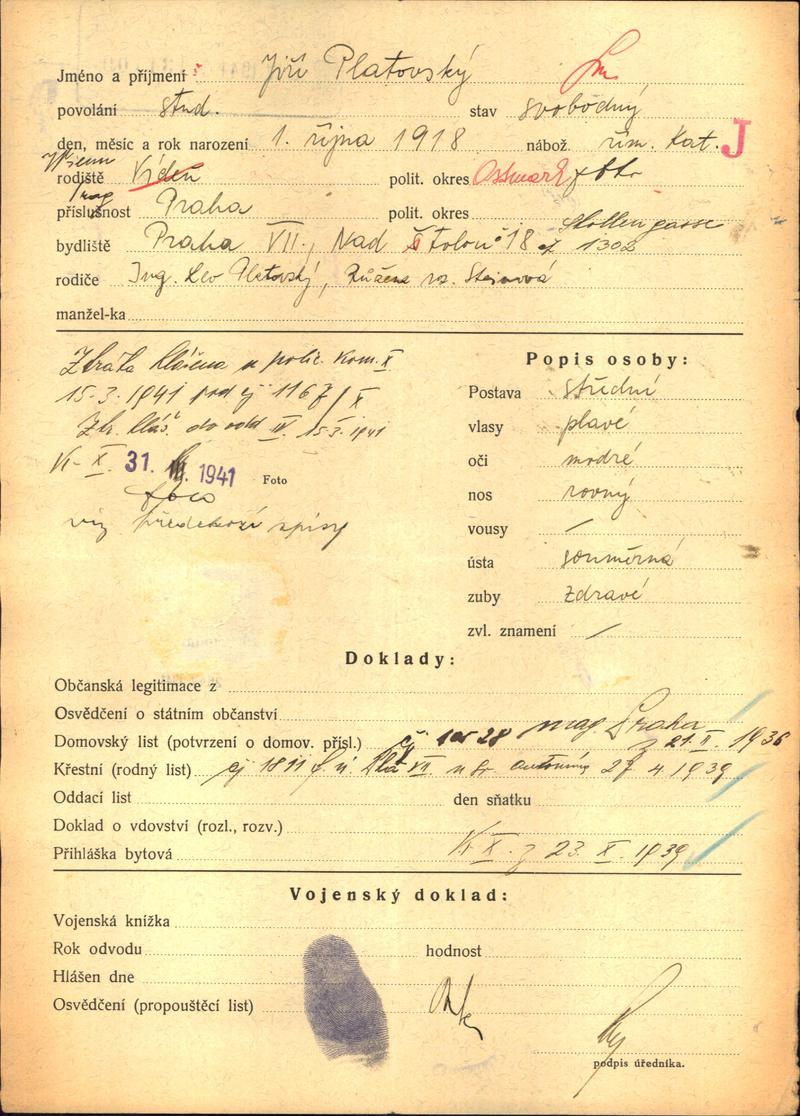 Jméno a příjmení Jiří Platovský
povolání stud. stav svobodný
den, měsíc a rok narození 1. října 1918 nábož. řím. kat. J
Wien
rodiště Vídeň polit. okres
příslušnost Praha polit. okres
bydliště Praha VII., Nad Štolou 18 1302
rodiče Ing. Leo Platovský, Růžena roz. Steinová
manžel-ka
Ztráta hlášena u polic. kom. X
15-3-1941 pod čj 1167/X
Ztr. hláš. do odd IV. 15-3-1941
K-X. 31. III. 1941 Foto
foto
viz předchozí spisy
Popis osoby:
Postava střední
vlasy plavé
oči modré
nos rovný
vousy /
ústa souměrná
zuby zdravé
zvl. znamení /
Doklady:
Občanská legitimace z
Osvědčení o státním občanství
Domovský list (potvrzení o domov. přísl.) čj mag. Praha z 21. II. 1936
Křestní (rodný list) čj 1811 f. ú. VII. u sv. Antonína 27 4 1939
Oddací list den sňatku
Doklad o vdovství (rozl., rozv.)
Přihláška bytová K X. z 23. X. 1939
Vojenský doklad:
Vojenská knížka
Rok odvodu hodnost
Hlášen dne
Osvědčení (propouštěcí list)
podpis úředníka.